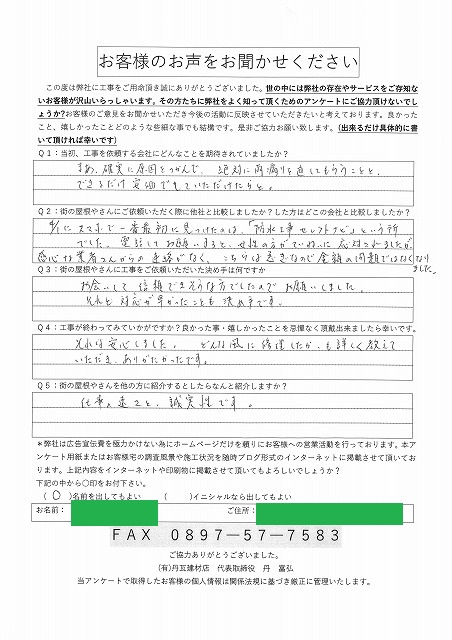 お客様のお声をお聞かせください
この度は弊社に工事をご用命頂き誠にありがとうございました。世の中には弊社の存在やサービスをご存知な
いお客様が沢山いらっしゃいます。その方たちに弊社をよく知って頂くためのアンケートにご協力頂けないでし
ょうか?お客様のご意見をお聞かせいただき今後の活動に反映させていただきたいと考えております。良かった
こと、嬉しかったことどのような些細な事でも結構です。是非ご協力お願い致します。(出来るだけ具体的に書
いて頂ければ幸いです)
Q1:当初、工事を依頼する会社にどんなことを期待されていましたか?
まあ、確実に原因をつかんで、絶対に雨漏りを直してもらうことと、
できるだけ安価でしていただけたらと。
Q2:街の屋根やさんにご依頼いただく際に他社と比較しましたか?した方はどこの会社と比較しましたか?
スマホで一番最初に見つけたのは、「防水工事セレクトナビ」という所
でした。電話してお願いすると、女性の方がていねいに応対されましたが、
肝心な業者さんからの連絡がなく、こちらは急ぎなので金額の問題ではなくなり
ました。
Q3:街の屋根やさんに工事をご依頼いただいた決め手は何ですか
お会いして、信頼できそうな方でしたのでお願いしました。
それと対応が早かったことも決め手です。
Q4:工事が終わってみていかがですか?良かった事・嬉しかったことを忌憚なく頂戴出来ましたら幸いです。
それは安心しました。どんな風に修復したか、も詳しく教えて
いただき、ありがたかったです。
Q5:街の屋根やさんを他の方に紹介するとしたらなんと紹介しますか?
仕事の速さと、誠実性です。
*弊社は広告宣伝費を極力かけない為にホームページだけを頼りにお客様への営業活動を行っております。本ア
ンケート用紙またはお客様宅の調査風景や施工状況を随時ブログ形式のインターネットに掲載させて頂いてお
ります。上記内容をインターネットや印刷物に掲載させて頂いてもよろしいでしょうか?
下記の中から〇印をお付下さい。
(〇)名前を出してもよい ( )イニシャルなら出してもよい
お名前: ご住所:
FAX 0897-57-7583
ご協力ありがとうございました。
(有)丹瓦建材店 代表取締役 丹 冨弘
当アンケートで取得したお客様の個人情報は関係法規に基づき厳正に管理いたします。